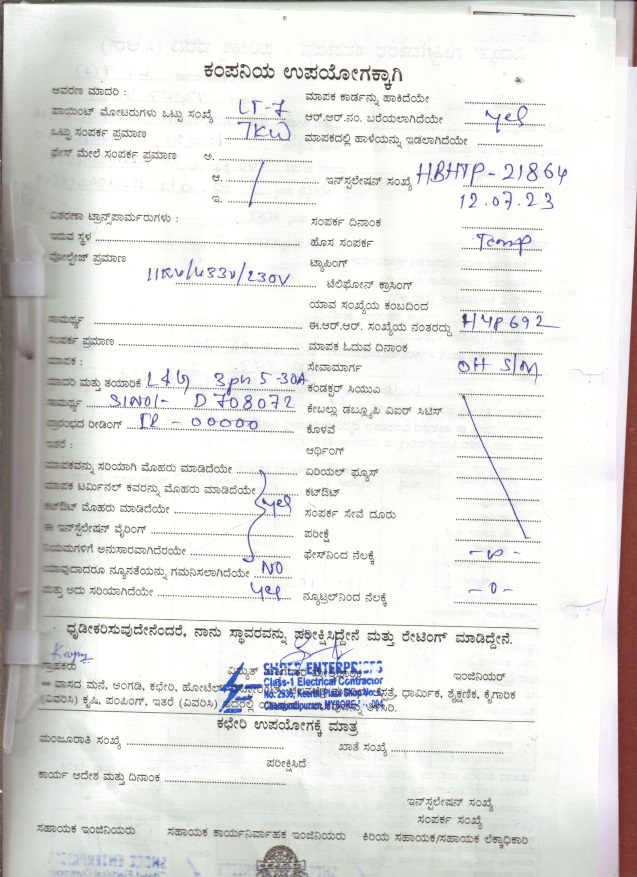 ಕಂಪನಿಯ ಉಪಯೋಗಕ್ಕಾಗಿ
ಆವರಣ ಮಾದರಿ :
ಮಾಪಕ ಕಾರ್ಡನ್ನು ಹಾಕಿದೆಯೇ
ಪಾಯಿಂಟ್ ಮೋಟರುಗಳು ಒಟ್ಟು ಸಂಖ್ಯೆ LT-7
ಆರ್.ಆರ್.ನಂ. ಬರೆಯಲಾಗಿದೆಯೇ yes
ಒಟ್ಟು ಸಂಪರ್ಕ ಪ್ರಮಾಣ 7KW
ಮಾಪಕದಲ್ಲಿ ಹಾಳೆಯನ್ನು ಇಡಲಾಗಿದೆಯೇ
ಫೇಸ್ ಮೇಲೆ ಸಂಪರ್ಕ ಪ್ರಮಾಣ ಅ.
ಆ.
ಇ.
ಇನ್‌ಸ್ಟಲೇಷನ್ ಸಂಖ್ಯೆ HBHTP-21864
12.07.23
ವಿತರಣಾ ಟ್ರಾನ್ಸ್‌ಫಾರ್ಮರುಗಳು :
ಸಂಪರ್ಕ ದಿನಾಂಕ
ಇರುವ ಸ್ಥಳ
ಹೊಸ ಸಂಪರ್ಕ Temp
ವೋಲ್ಟೇಜ್ ಪ್ರಮಾಣ
ಟ್ಯಾಪಿಂಗ್
11KV/433V/230V
ಟೆಲಿಫೋನ್ ಕ್ರಾಸಿಂಗ್
ಯಾವ ಸಂಖ್ಯೆಯ ಕಂಬದಿಂದ
ಸಾಮರ್ಥ್ಯ
ಈ.ಆರ್.ಆರ್. ಸಂಖ್ಯೆಯ ನಂತರದ್ದು H4P692
ಸಂಪರ್ಕ ಪ್ರಮಾಣ
ಮಾಪಕ ಓದುವ ದಿನಾಂಕ
ಮಾಪಕ :
ಸೇವಾಮಾರ್ಗ OH S/M
ಮಾದರಿ ಮತ್ತು ತಯಾರಿಕೆ L&G 3ph 5-30A
ಕಂಡಕ್ಟರ್ ಸಿಯುಎ
ಸಾಮರ್ಥ್ಯ Sl No:- D708072
ಕೇಬಲ್ಲು ಡಬ್ಲ್ಯೂಪಿ ವಿಐರ್ ಸಿಟಿಸ್
ಪ್ರಾರಂಭದ ರೀಡಿಂಗ್ IR - 00000
ಕೊಳವೆ
ಇತರೆ :
ಆರ್ಥಿಂಗ್
ಮಾಪಕವನ್ನು ಸರಿಯಾಗಿ ಮೊಹರು ಮಾಡಿದೆಯೇ
ಏರಿಯಲ್ ಫ್ಯೂಸ್
ಮಾಪಕ ಟರ್ಮಿನಲ್ ಕವರನ್ನು ಮೊಹರು ಮಾಡಿದೆಯೇ yes
ಕಟ್‌ಔಟ್
ಕಟ್‌ಔಟ್ ಮೊಹರು ಮಾಡಿದೆಯೇ
ಸಂಪರ್ಕ ಸೇವೆ ದೂರು
ಈ ಇನ್‌ಸ್ಟಲೇಷನ್ ವೈರಿಂಗ್
ಪರೀಕ್ಷೆ
ನಿಯಮಗಳಿಗೆ ಅನುಸಾರವಾಗಿದೆರಯೇ
ಫೇಸ್‌ನಿಂದ ನೆಲಕ್ಕೆ -0-
ಯಾವುದಾದರೂ ನ್ಯೂನತೆಯನ್ನು ಗಮನಿಸಲಾಗಿದೆಯೇ NO
ಮತ್ತು ಅದು ಸರಿಯಾಗಿದೆಯೇ yes
ನ್ಯೂಟ್ರಲ್‌ನಿಂದ ನೆಲಕ್ಕೆ -0-
ಧೃಢೀಕರಿಸುವುದೇನೆಂದರೆ, ನಾನು ಸ್ಥಾವರವನ್ನು ಪರೀಕ್ಷಿಸಿದ್ದೇನೆ ಮತ್ತು ರೇಟಿಂಗ್ ಮಾಡಿದ್ದೇನೆ.
ಗ್ರಾಹಕರು
ವಿದ್ಯುತ್
ಇಂಜಿನಿಯರ್
SHREE ENTERPRISES
Class-1 Electrical Contractor
No. 2936, Keerthi Plaza Shop No.
Chamundipuram, MYSORE-
** ವಾಸದ ಮನೆ, ಅಂಗಡಿ, ಕಛೇರಿ, ಹೋಟೆಲ್ ಧಾರ್ಮಿಕ, ಶೈಕ್ಷಣಿಕ, ಕೈಗಾರಿಕ
(ವಿವರಿಸಿ) ಕೃಷಿ, ಪಂಪಿಂಗ್, ಇತರೆ (ವಿವರಿಸಿ) ತಿಳಿಸಿರಿ.
ಕಛೇರಿ ಉಪಯೋಗಕ್ಕೆ ಮಾತ್ರ
ಮಂಜೂರಾತಿ ಸಂಖ್ಯೆ
ಖಾತೆ ಸಂಖ್ಯೆ
ಪರೀಕ್ಷಿಸಿದೆ
ಕಾರ್ಯ ಆದೇಶ ಮತ್ತು ದಿನಾಂಕ
ಇನ್‌ಸ್ಟಲೇಷನ್ ಸಂಖ್ಯೆ
ಸಂಪರ್ಕ ಸಂಖ್ಯೆ
ಸಹಾಯಕ ಇಂಜಿನಿಯರು ಸಹಾಯಕ ಕಾರ್ಯನಿರ್ವಾಹಕ ಇಂಜಿನಿಯರು ಕಿರಿಯ ಸಹಾಯಕ/ಸಹಾಯಕ ಲೆಕ್ಕಾಧಿಕಾರಿ